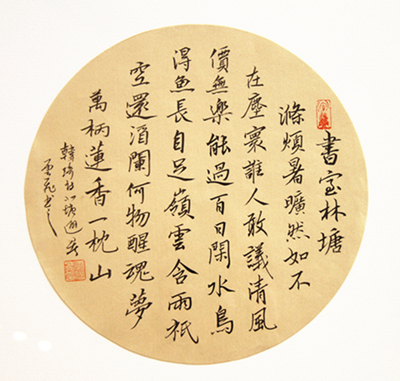 書室林塘
滌煩暑曠然如不
在塵寰誰人敢議清風
價無樂能過百日閑水鳥
得魚長自足嶺雲含雨祇
空還酒闌何物醒魂夢
萬柄蓮香一枕山
韓琦北塘避暑